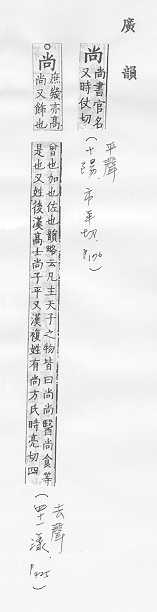 廣韻
尚 尚書官名
又時仗切
(平聲
十陽,市羊切,
P176)
○尚 庶幾亦高
尚又飾也
曾也加也佐也韻略云凡主天子之物皆曰尚尚醫尚食等
是也又姓後漢高士尚子平又漢複姓有尚方氏時亮切四
(去聲
四十一漾,
P425)